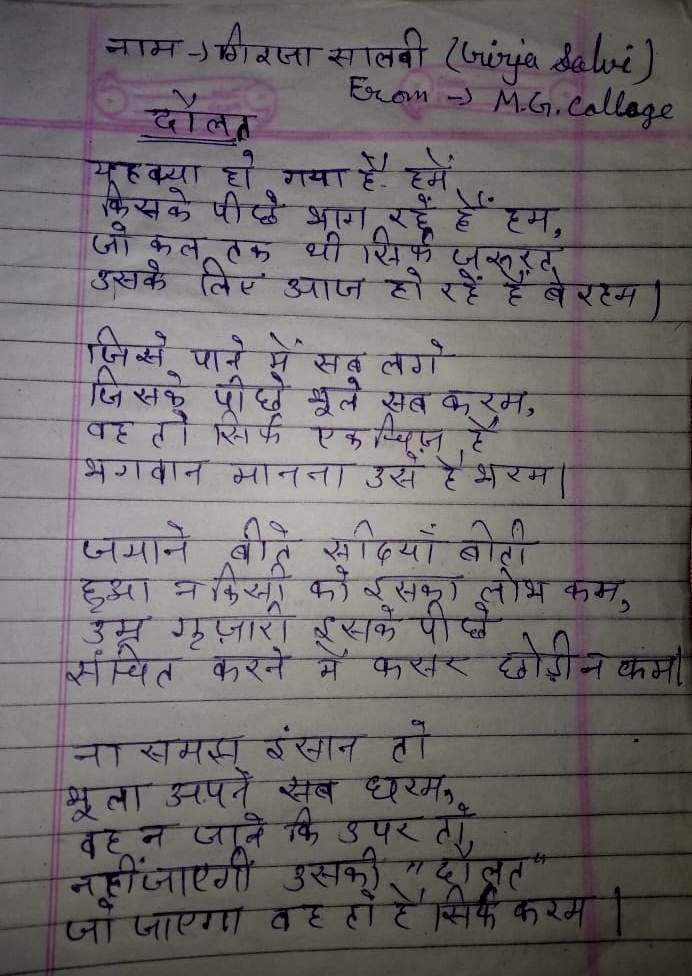 नाम -> गिरजा सालवी (Girja Salvi)
From -> M.G. Collage
दौलत
यह क्या हो गया है हमें
किसके पीछे भाग रहें हैं हम,
जो कल तक थी सिर्फ जरूरत
उसके लिए आज हो रहें हैं बे रहम।
जिसे पाने में सब लगे
जिसके पीछे भूले सब करम,
वह तो सिर्फ एक चिज़ है
भगवान मानना उसे है भरम।
जमाने बीते सदियाँ बीती
हुआ न किसी को इसका लोभ कम,
उम्र गुज़ारी इसके पीछे
संचित करने में कसर छोड़ी न कम।
ना समझ इंसान तो
भूला अपने सब धरम,
वह न जाने कि उपर तो
नहीं जाएगी उसकी "दौलत"
जो जाएगा वह तो है सिर्फ करम।